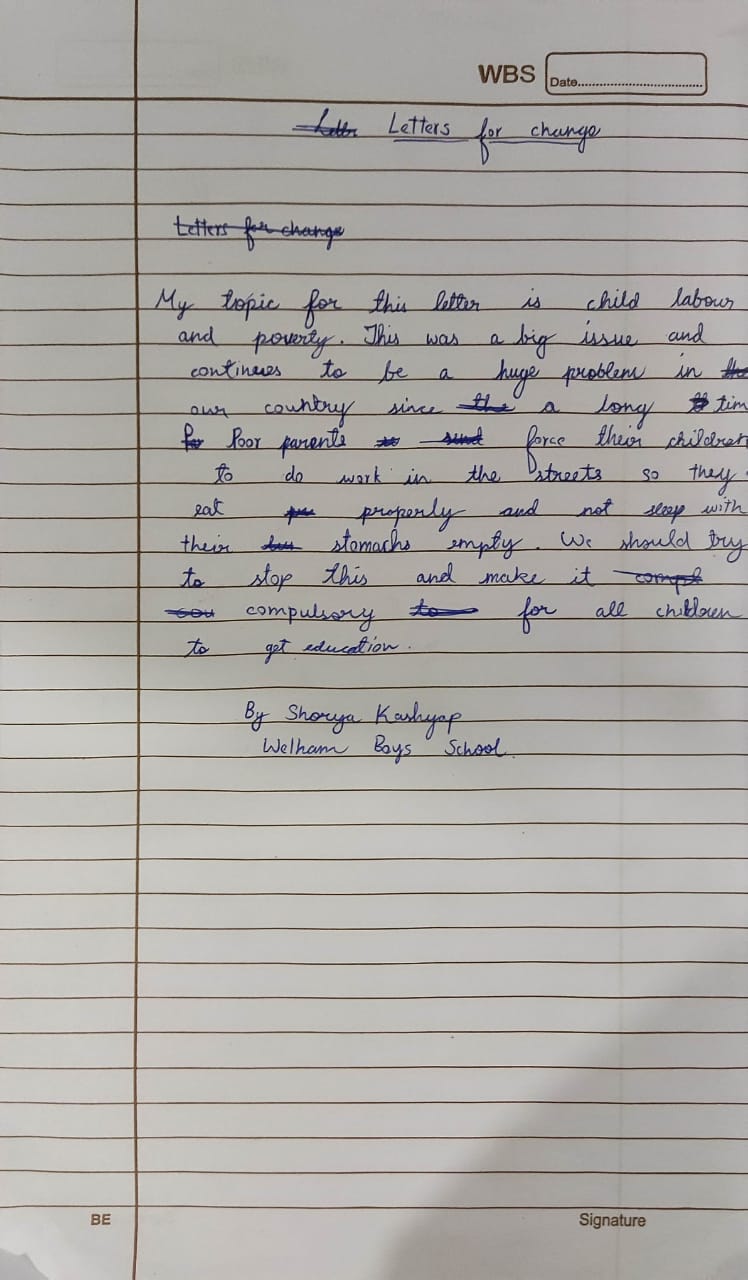 WBS Date
Letters for change
Letters for change
My topic for this letter is child labour
and poverty. This was a big issue and
continues to be a huge problem in the
our country since the a long tim
Poor parents force their children
to do work in the streets so they
eat properly and not sleep with
their stomachs empty. We should try
to stop this and make it compl
cou compulsory to for all children
to get education.
By Shorya Kashyap
Welham Boys School.
BE Signature